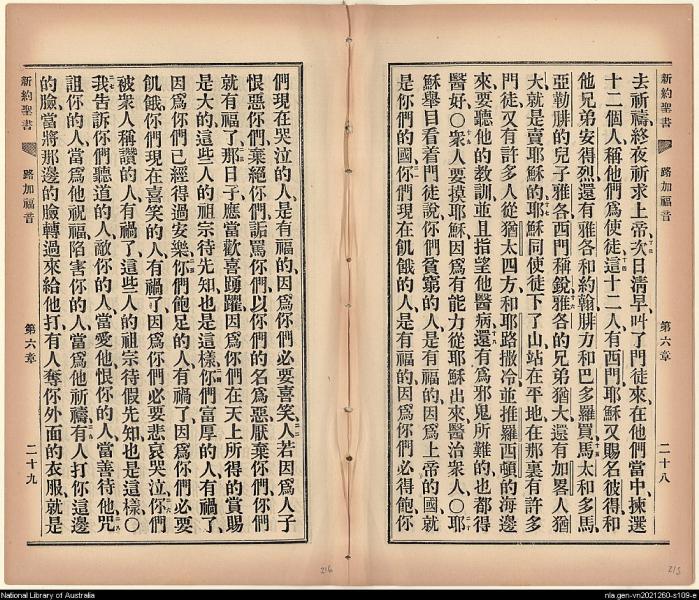 新約聖書 路加福音 第六章 二十八
去祈禱、終夜祈求上帝、次日淸早、叫了門徒來、在他們當中揀選
十二個人、稱他們爲使徒、這十二人、有西門、耶穌又賜名彼得、和
他兄弟安得烈、還有雅各和約翰、腓力和巴多羅買、馬太和多馬、
亞勒腓的兒子雅各、西門稱銳、雅各的兄弟猶大、還有加畧人猶
大、就是賣耶穌的、耶穌同使徒下了山、站在平地、在那裏有許多
門徒、又有許多人、從猶太四方、和耶路撒冷、並推羅西頓的海邊
來、要聽他的敎訓、並且指望他醫病、還有爲邪鬼所難的、也都得
醫好、○衆人要摸耶穌、因爲有能力從耶穌出來、醫治衆人、○耶
穌舉目看着門徒說、你們貧窮的人、是有福的、因爲上帝的國、就
是你們的國、你們現在飢餓的人、是有福的、因爲你們必得飽、你
們現在哭泣的人、是有福的、因爲你們必要喜笑、人若因爲人子
恨惡你們、棄絕你們、詬罵你們、以你們的名爲惡、厭棄你們、你們
就有福了、那日子應當歡喜踴躍、因爲你們在天上所得的賞賜
是大的、這些人的祖宗待先知、也是這樣、你們富厚的人有禍了、
因爲你們已經得過安樂、你們飽足的人有禍了、因爲你們必要
飢餓、你們現在喜笑的人、有禍了、因爲你們必要悲哀哭泣、你們
被衆人稱讚的人有禍了、這些人的祖宗待假先知也是這樣、○
我告訴你們聽道的人、敵你的人、當愛他、恨你的人、當善待他、咒
詛你的人、當爲他祝福、陷害你的人、當爲他祈禱、有人打你這邊
的臉、當將那邊的臉轉過來給他打、有人奪你外面的衣服、就是
新約聖書 路加福音 第六章 二十九
215
216
National Library of Australia
nla.gen-vn2021260-s109-e